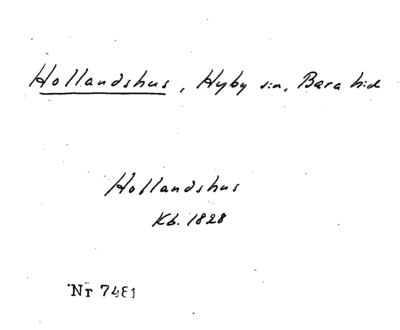 Hollandshus, Hyby sn, Bara hd
Hollandshus
Kb. 1828
Nr 7481